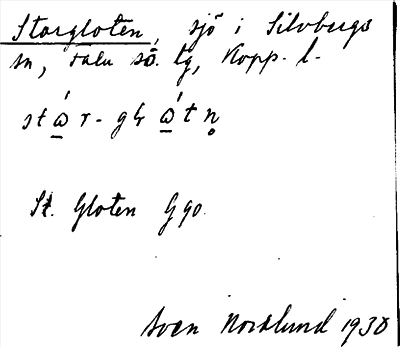 Storgloten, sjö i Silvbergs
sn, Falu sö. tg, Kopp. l.
St. Gloten G 90.
Sven Nordlund 1938